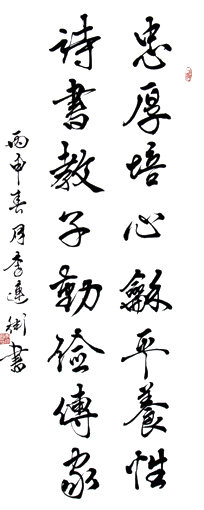 忠厚培心龢平養性
詩書教子勤儉傳家
丙申春月李連衡書